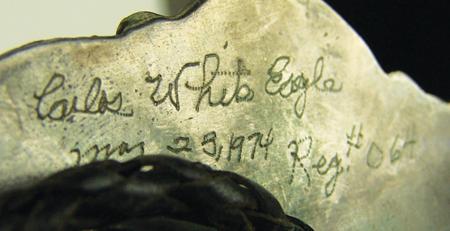 Carlos White Eagle
Mar 23, 1974 Reg. # 064